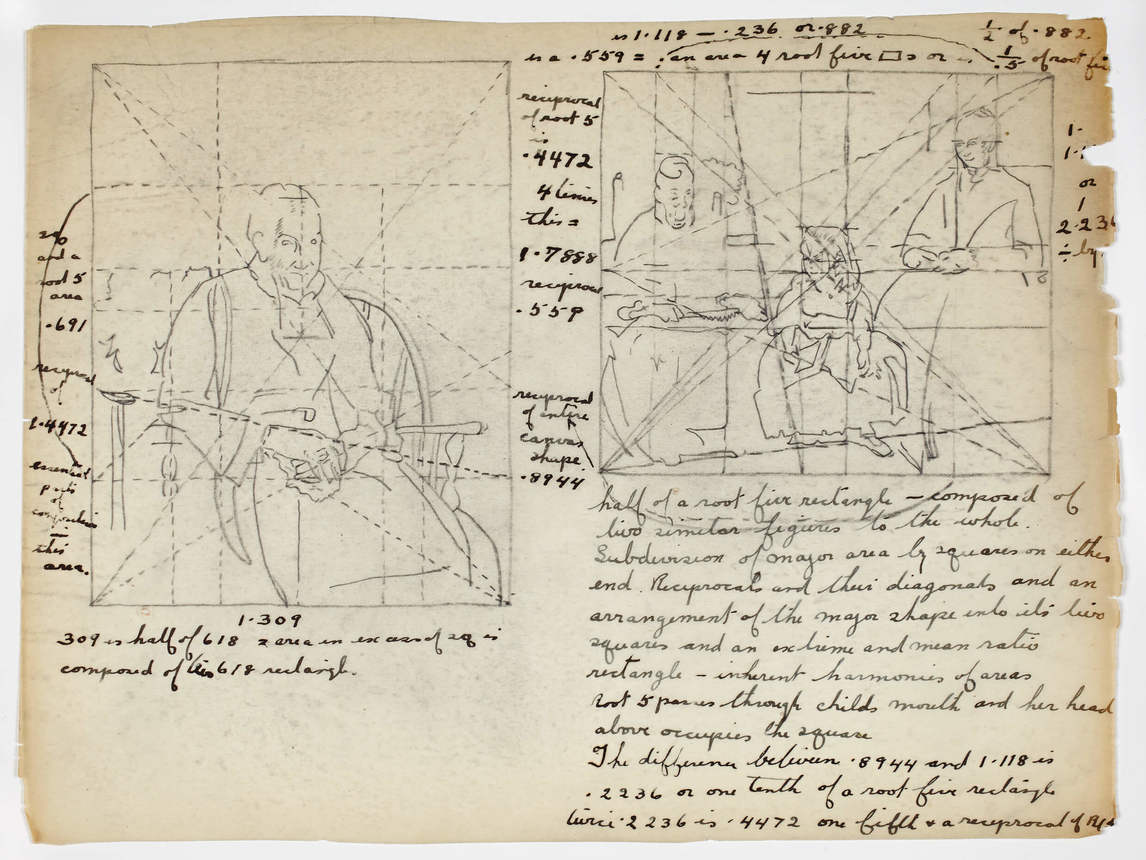 is 1.118 — .236 or .882
1/2 of .882.
is a .559 = an area 4 root five □s or is 1/.5 of root fi
reciprocal
of root 5
is
.4472
4 times
this =
1.7888
reciprocal
.559
reciprocal
of entire
canvas
shape
.8944
sq
and a
root 5
area
.691
reciprocal
of
1.4472
essential
parts
of
composition
in
this
area.
1.309
309 is half of 618 = area in excess of sq is
composed of two 618 rectangle.
1.
1.1
or
1
2.236
÷ by
half of a root five rectangle — composed of
two similar figures to the whole.
Subdivision of major area by squares on either
end. Reciprocals and their diagonals and an
arrangement of the major shape into its two
squares and an extreme and mean ratio
rectangle — inherent harmonies of areas
root 5 passes through childs mouth and her head
above occupies the square
The difference between .8944 and 1.118 is
.2236 or one tenth of a root five rectangle
twice .2236 is .4472 one fifth & a reciprocal of